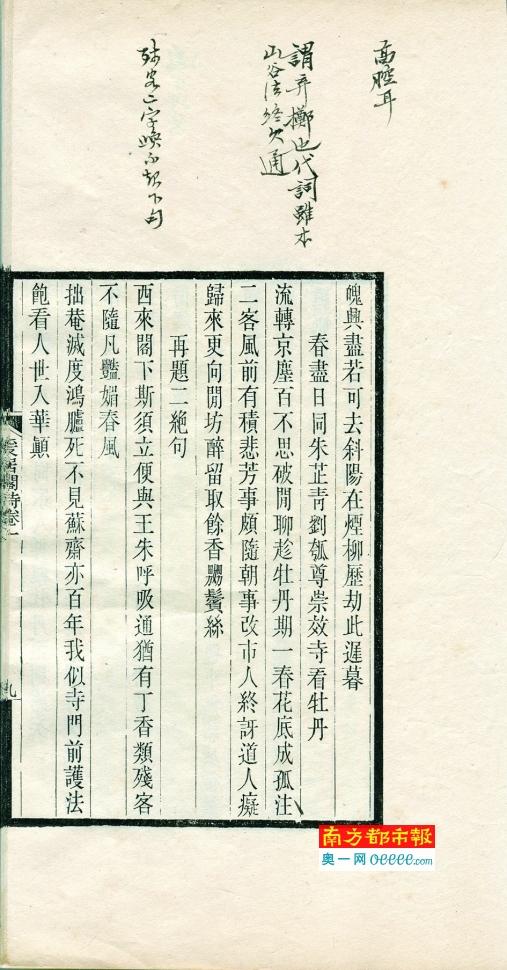 高腔耳
謂弃擲也代詞雖本
山谷法終欠通
殘客二字喚不起下句
媿興盡若可去斜陽在煙柳歷劫此遲暮
春盡日同朱芷青劉瓠尊崇效寺看牡丹
流轉京塵百不思破閒聊趁牡丹期一春花底成孤注
二客風前有積悲芳事頗隨朝事改市人終訝道人癡
歸來更向閒坊醉留取餘香嬲鬢絲
再題二絕句
西來閣下斯須立便與王朱呼吸通猶有丁香類殘客
不隨凡豔媚春風
拙菴滅度鴻臚死不見蘇齋亦百年我似寺門前護法
飽看人世入華顛
爰居閣詩卷一
九
南方都市報
奥一网 oeeee.com